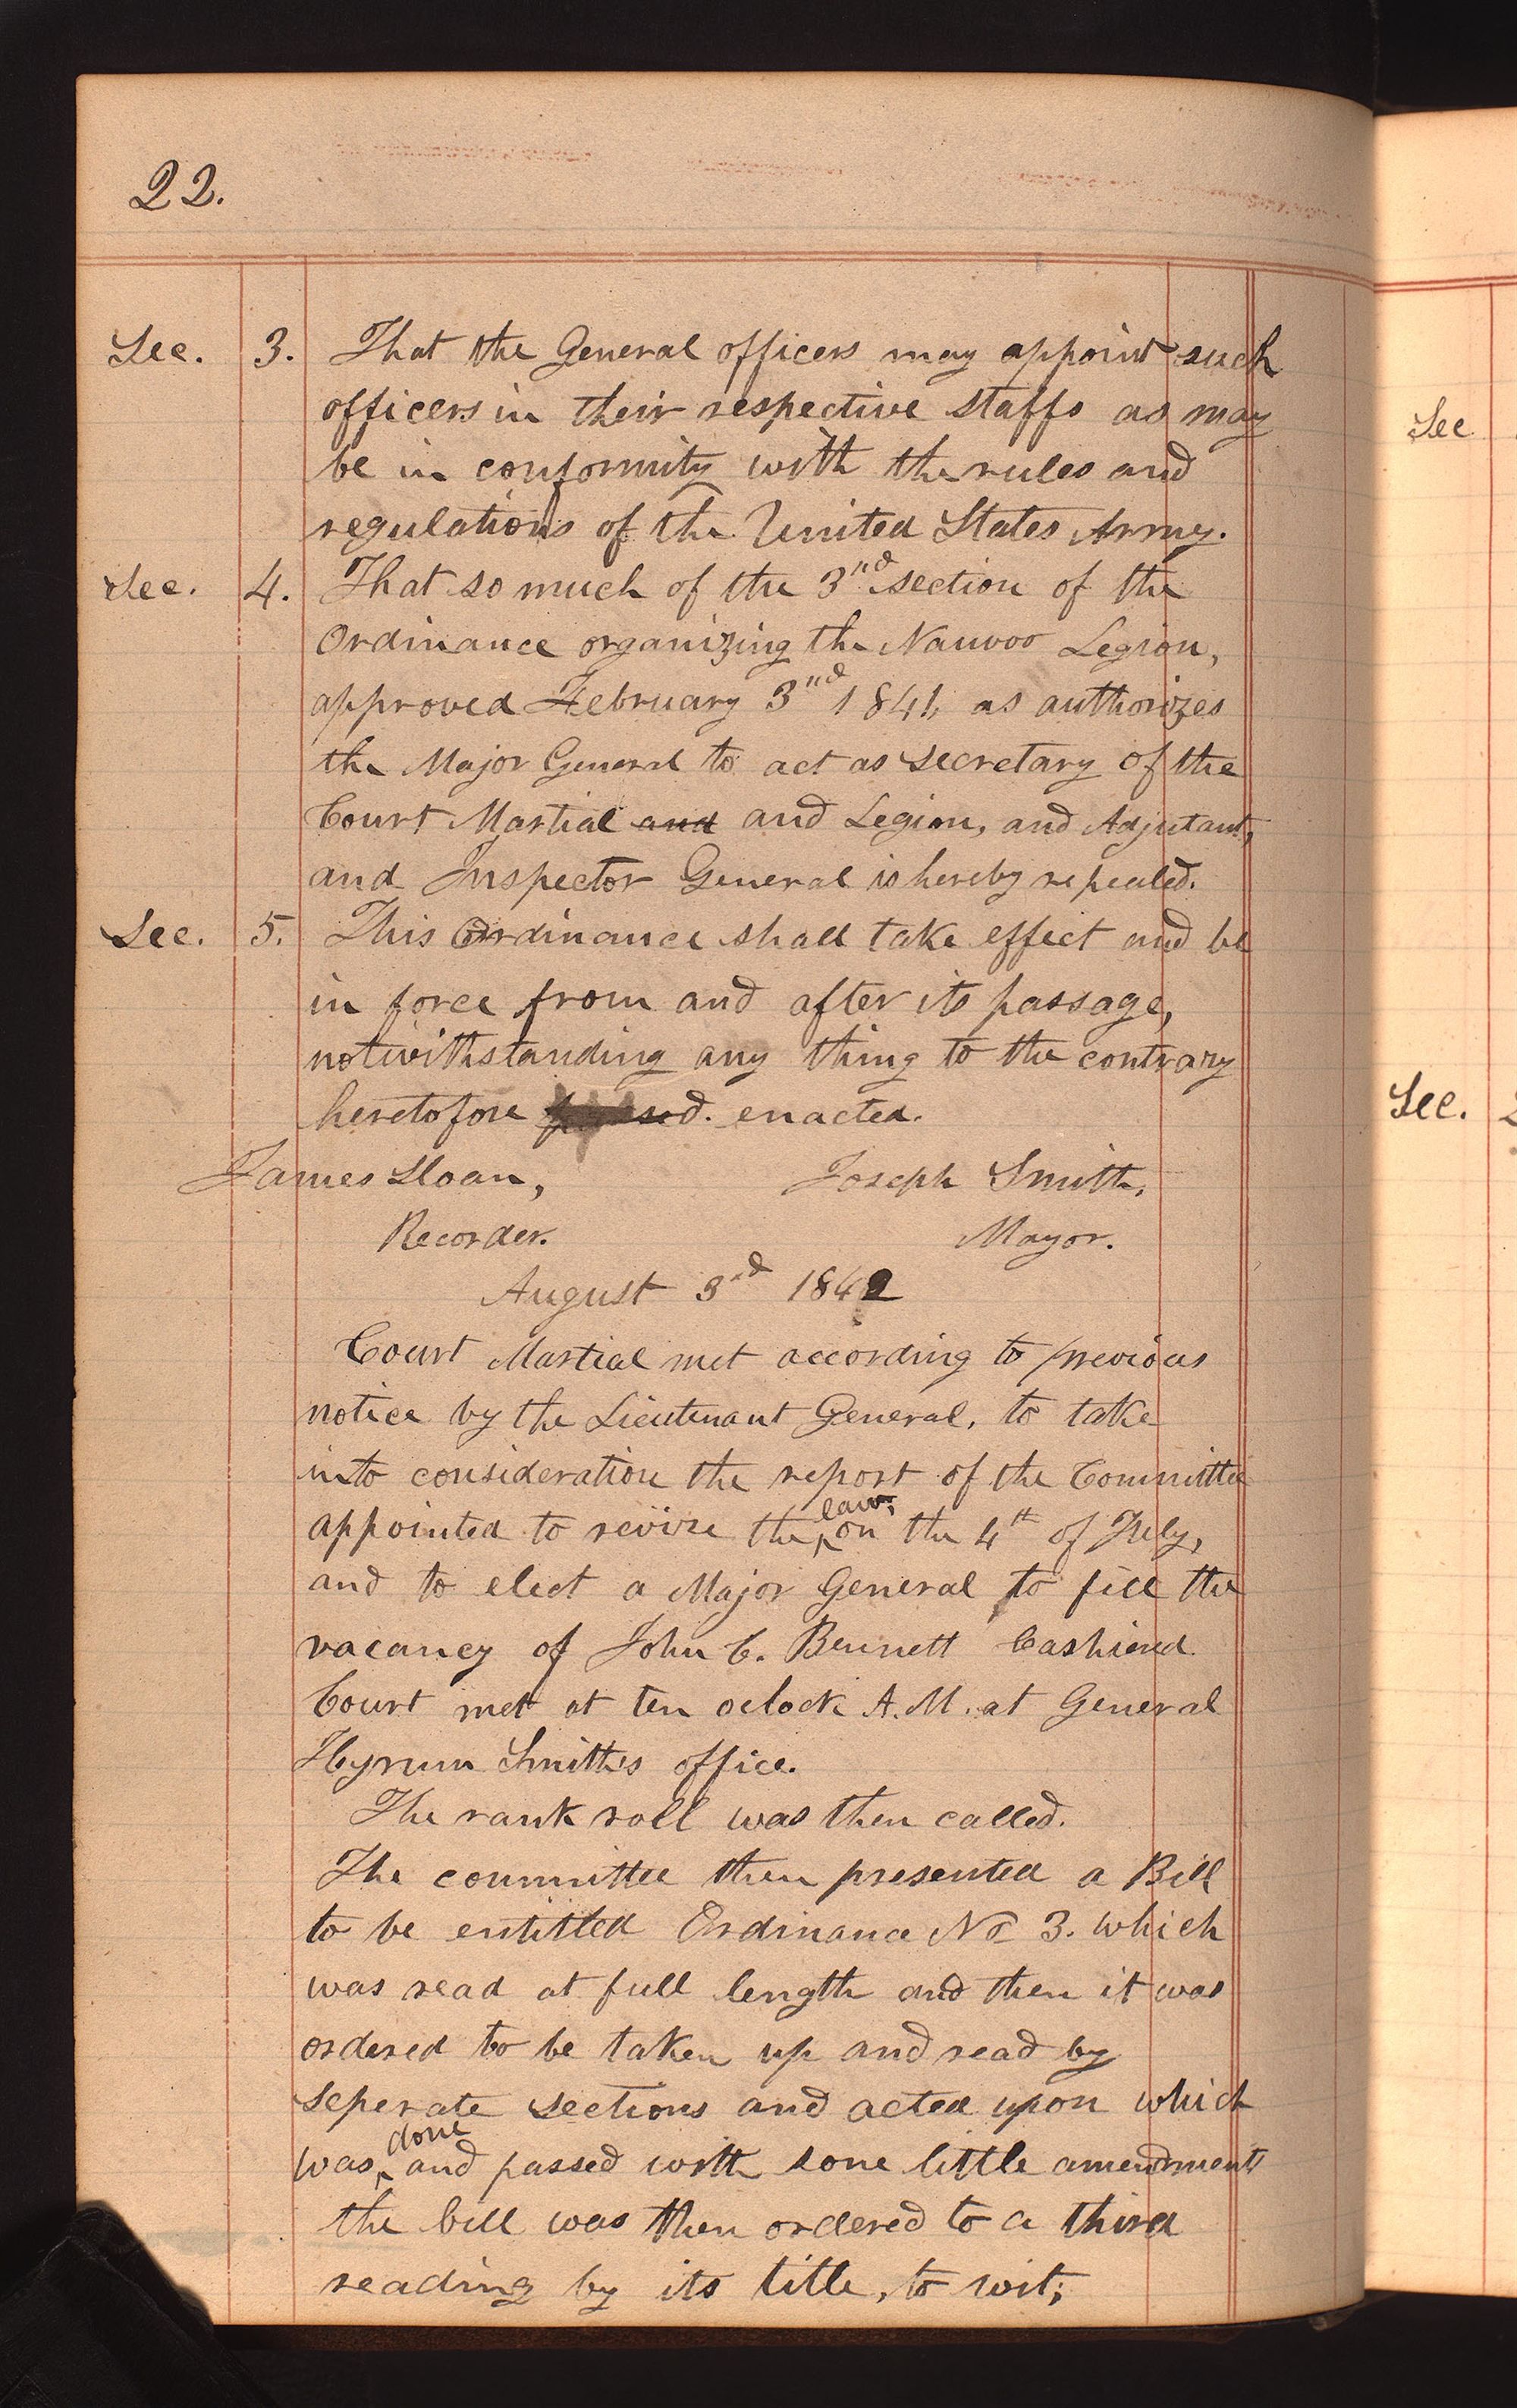 22.
Sec. 3. That the General officers may appoint such
officers in their respective staffs as may
be in conformity with the rules and
regulations of the United States Army.
Sec. 4. That so much of the 3rd section of the
Ordinance organizing the Nauvoo Legion,
approved February 3rd 1841, as authorizes
the Major General to act as Secretary of the
Court Martial and and Legion, and Adjutant,
and Inspector General is hereby repealed.
Sec. 5. This Ordinance shall take effect and be
in force from and after its passage,
notwithstanding any thing to the contrary
heretofore passed. enacted.
James Sloan, Joseph Smith,
Recorder. Mayor.
August 3rd 1842
Court Martial met according to previous
notice by the Lieutenant General, to take
into consideration the report of the Committee
appointed to revise the laws on the 4th of July,
and to elect a Major General to fill the
vacancy of John C. Bennett Cashiered
Court met at ten oclock A.M. at General
Hyrum Smith's office.
The rank roll was then called.
The committee then presented a Bill
to be entitled Ordinance No 3. which
was read at full length and then it was
ordered to be taken up and read by
seperate sections and acted upon which
was done and passed with some little amendments
the bill was then ordered to a third
reading by its title, to wit;
Sec
Sec. 2